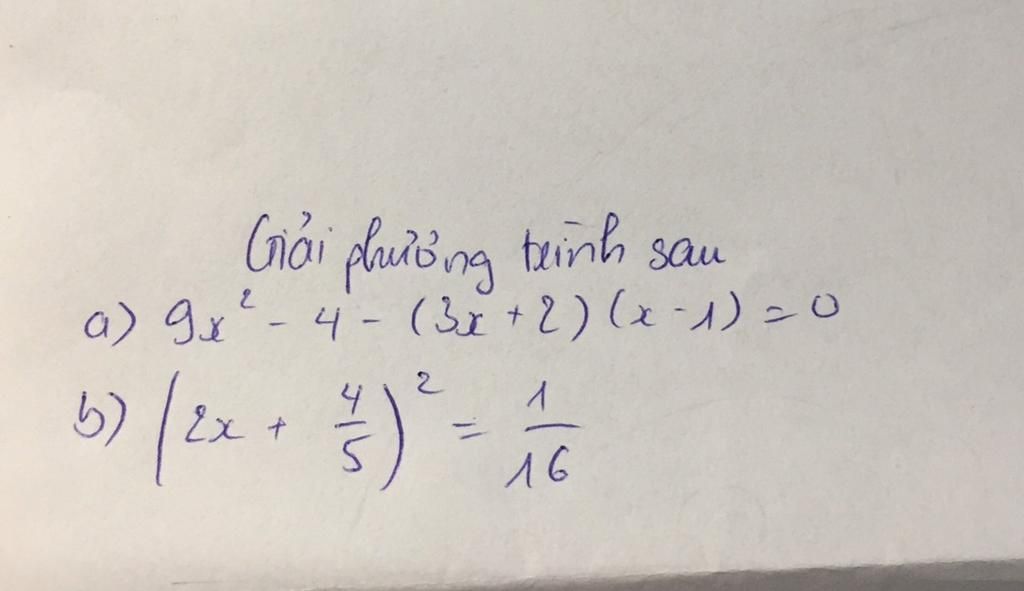 Giải phương trình sau
a) 9x² - 4 - (3x + 2)(x - 1) = 0
b) (2x + 4/5)² = 1/16